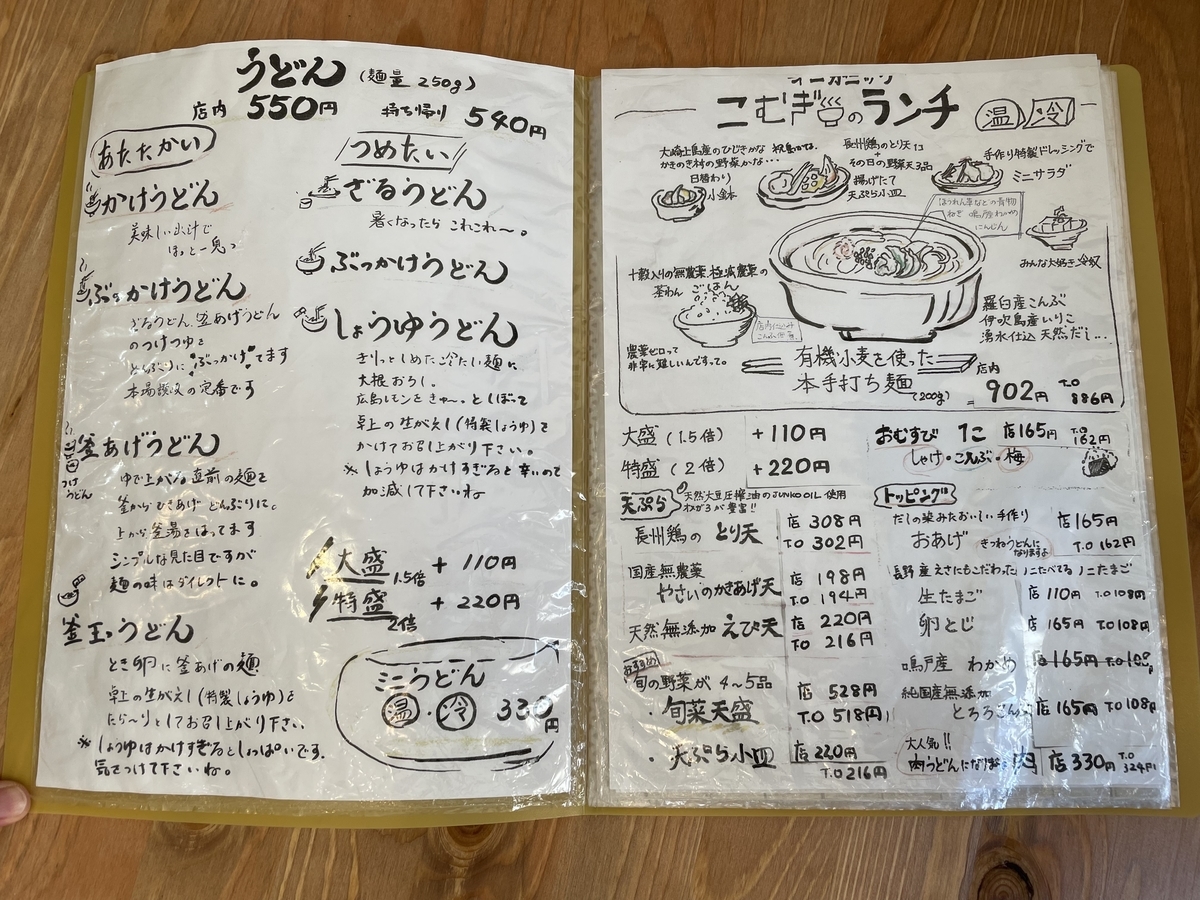 うどん (麺量 250g)
店内 550円 持ち帰り 540円
あたたかい
かけうどん
美味しい出汁で
ほっと一息つ
ぶっかけうどん
ざるうどん、釜あげうどん
のつけつゆを
どんぶりに"ぶっかけ"てます
本場讃岐の定番です
釜あげうどん
つけ
うどん
ゆで上がる直前の麺を
釜からひきあげ どんぶりに。
上から釜湯をはってます
シンプルな見た目ですが
麺の味はダイレクトに。
釜玉うどん
とき卵に釜あげの麺
卓上の生がえし(特製しょうゆ)を
たら〜りとしてお召し上がり下さい。
※しょうゆはかけすぎるとしょっぱいです。
気をつけて下さいね。
つめたい
ざるうどん
暑くなったら これこれ〜。
ぶっかけうどん
しょうゆうどん
きりっとしめた冷たい麺に
大根おろし。
広島レモンをきゅ〜。としぼって
卓上の生がえし(特製しょうゆ)を
かけてお召し上がり下さい。
※しょうゆはかけすぎると辛いので
加減して下さいね
大盛 1.5倍 + 110円
特盛 2倍 + 220円
ミニうどん
温・冷 330円
オーガニック
こむぎのランチ 温 冷
大崎上島産のひじきかな
かきのき村の野菜かな…
日替わり
小鉢
長州鶏のとり天1コ
+
その日の野菜天3品
揚げたて
天ぷら小皿
手作り特製ドレッシングで
ミニサラダ
ほうれん草などの青物
ねぎ 鳴戸産わかめ
にんじん
みんな大好き 冷奴
十穀入りの無農薬、極減農薬の
茶わん ごはん
店内仕込み
農薬ゼロって
非常に難しいんですって。
羅臼産こんぶ
伊吹島産いりこ
湧水仕込 天然だし…
有機小麦を使った
本手打ち麺 (200g)
店内 902円 T.O 886円
大盛 (1.5倍) + 110円
特盛 (2倍) + 220円
おむすび 1コ 店165円 T.O 162円
しゃけ・こんぶ・梅
天ぷら
天然大豆圧搾油のJUNKO OIL 使用
長州鶏の とり天 店 308円 T.O 302円
国産無農薬
やさいのかきあげ天 店 198円 T.O 194円
天然無添加 えび天 店 220円 T.O 216円
おすすめ
旬の野菜が 4〜5品
・旬菜天盛 店 528円 T.O 518円
・天ぷら小皿 店 220円 T.O 216円
トッピング
だしの染みたおいしい手作り
おあげ 店165円 T.O 162円
きつねうどんに
なりますよ
長野産えさにもこだわった たまご
生たまご 店 110円 T.O 108円
卵とじ 店 165円 T.O 108円
鳴戸産 わかめ 店165円
純国産無添加
とろろこんぶ 店 165円 T.O 108円
大人気!!
肉うどんになります 肉 店 330円 T.O 324円